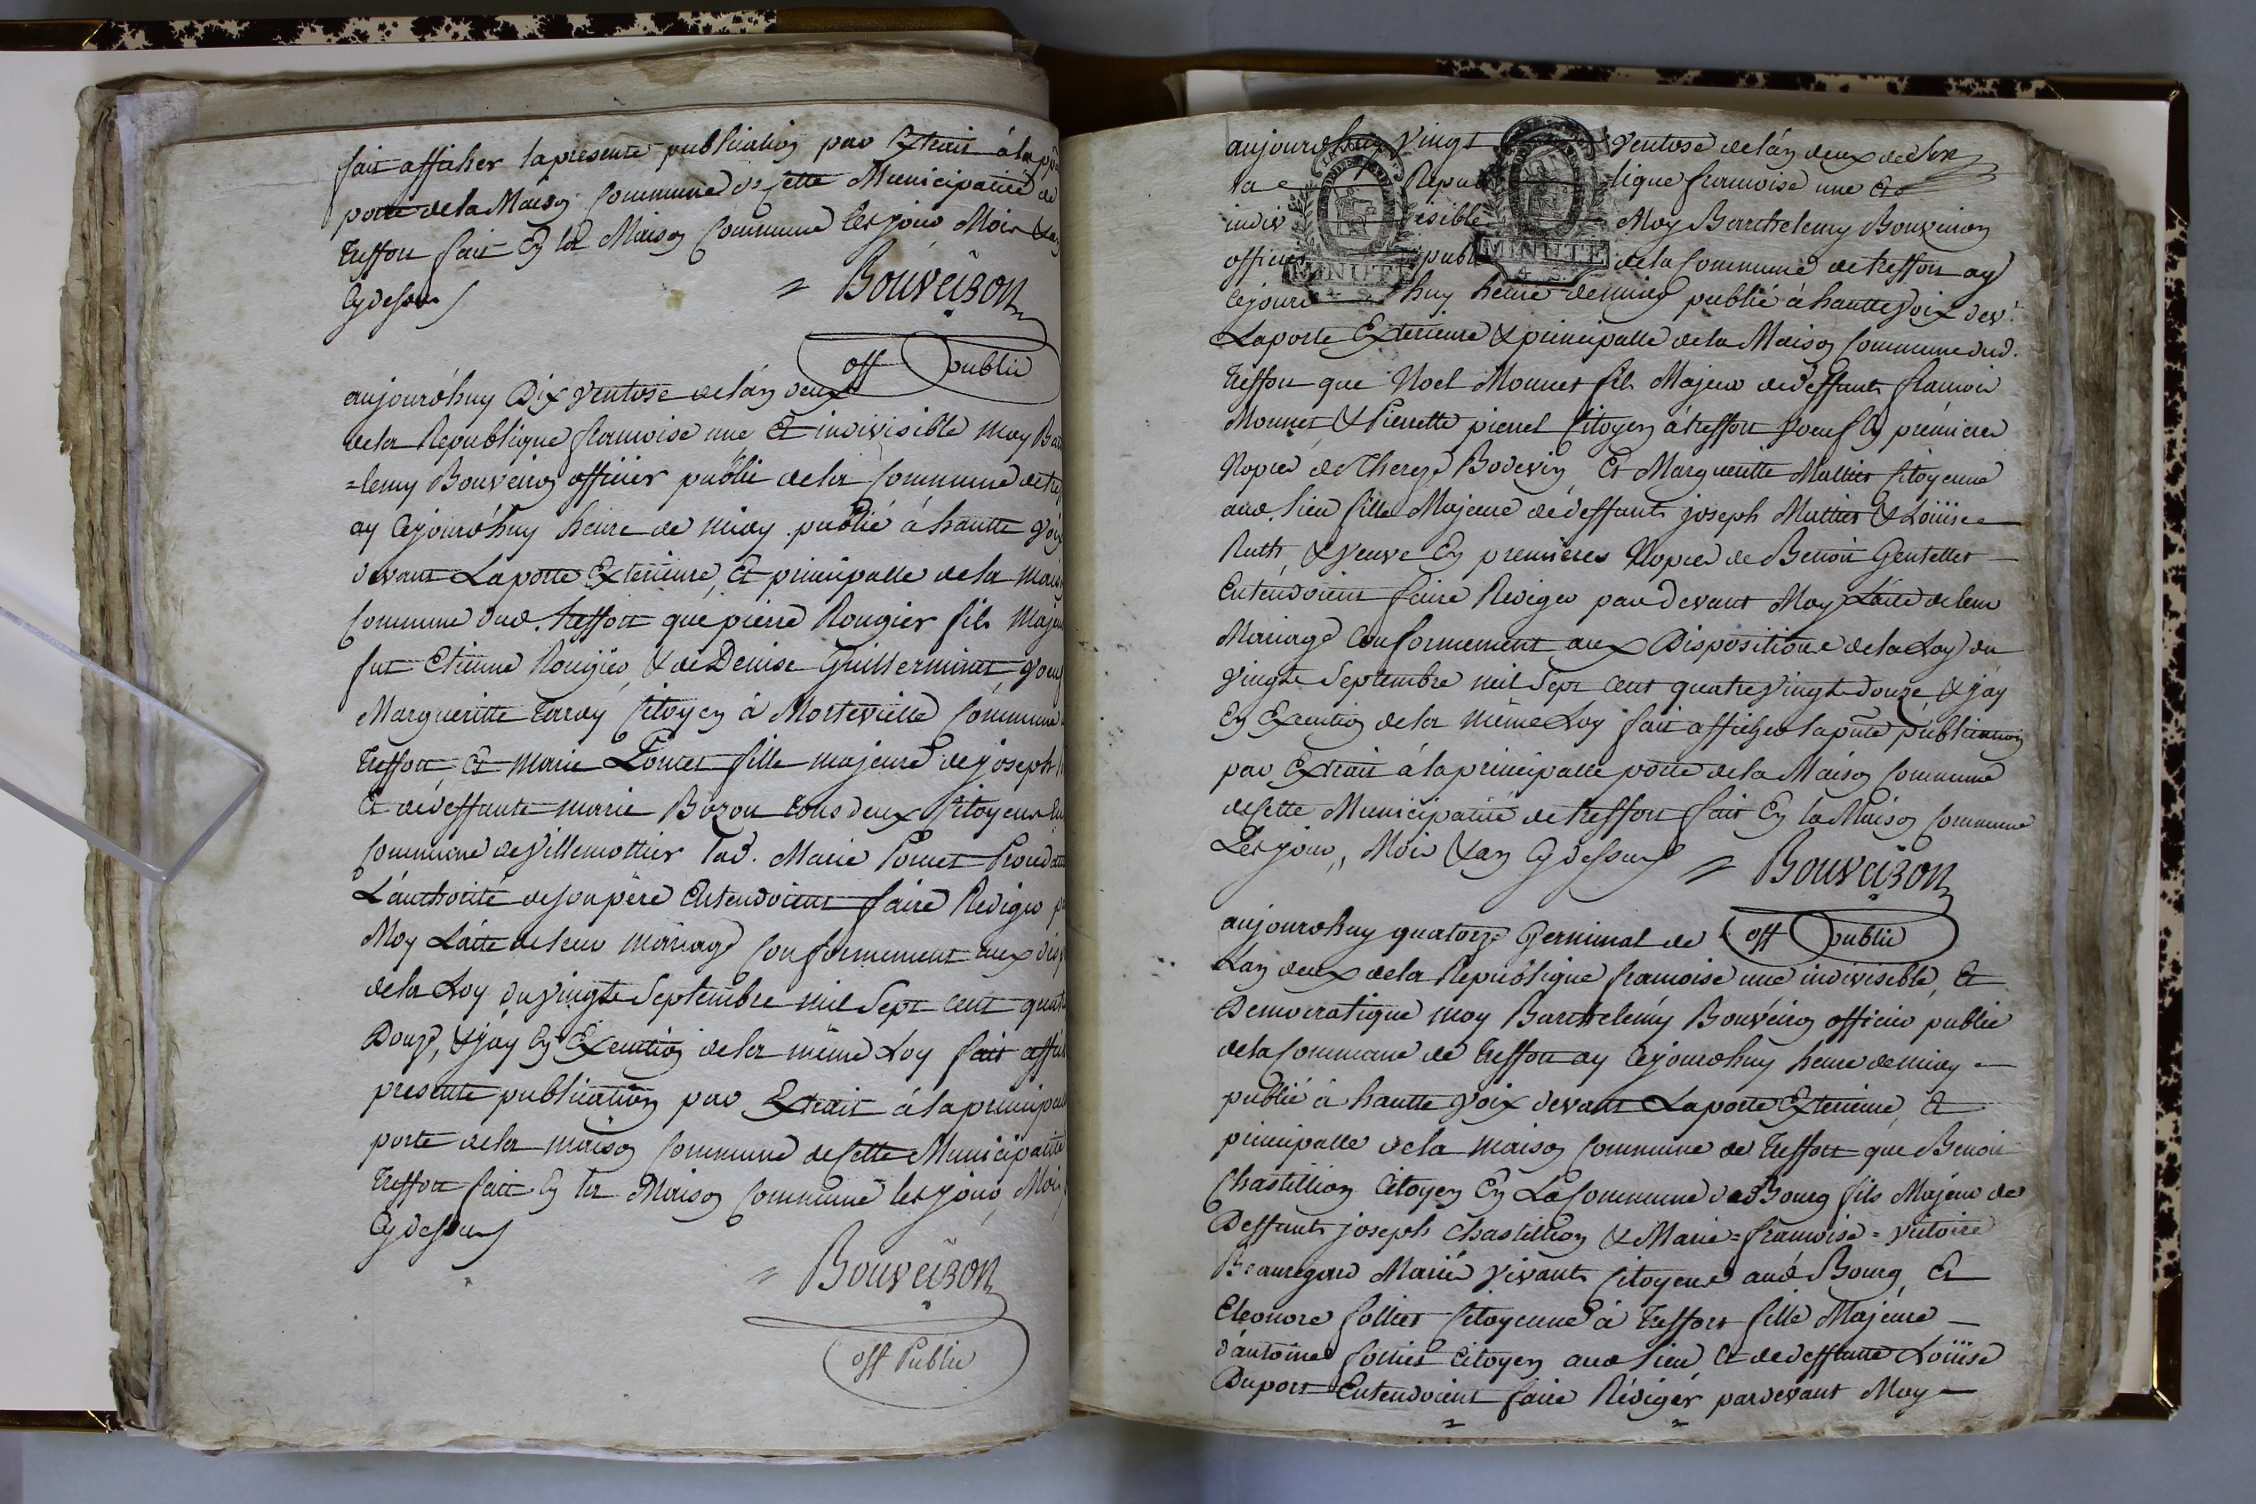 fait afficher la presente publication par Extrait á la
porte de la Maison Commune de Cette Municipalité de
treffort fait En la Maison Commune les jour Mois &
Cydessus
Bouveiron
off public
aujourd'huy Dix ventose de l'án deux
de la Republique francoise une Et indivisible moy
=lemy Bouveiron officier public de la Commune de
ay cejourd'huy heure de midy publié á hautte voix
devant La porte Exterieure, Et principalle de la
Commune dud. treffort que pierre Rougier fils
fut Etienne Rougier, & de Denise Guillerminet, veuf
Margueritte Tardy Citoyen á Mortevieille Commune
treffort, Et marie Poncet fille majeure de joseph
Et de deffunte marie Bozon tous deux Citoyens
Commune de villemottier lad. Marie Poncet
L'authorité de son pere Entendoient faire Rediger
Moy L'acte de leur mariage Conformement aux
de la Loy du vingt Septembre mil Sept cent
Douze, & j'ay En Execution de la même Loy fait
presente publication par Extrait á la
porte de la maison Commune de Cette Municipalité
treffort fait En la Maison Commune les jour, Mois,
Cydessus
Bouveiron
off Public
aujourdhuy vingt ventose de l'án deux de
la Republique francoise une Et
indivisible Moy Barthelemy Bouveiron
officier public de la Commune de treffort ay
cejourdhuy heure de midy publié á hautte voix dev.t
La porte Exterieure & principalle de la Maison Commune dud.
treffort que Noel Monnet fils Majeur de deffunts francois
Monnet, & Pierrette pienet Citoyen á treffort veuf En premieres
Nopces de Thereze Bodevin, Et Margueritte Mattiet Citoyenne
aud. lieu fille Majeure de deffunts joseph Mattiet & Loüise
Ruth, & veuve En premieres Nopces de Benoit Gentellet
Entendoient faire Rediger par devant Moy L'acte de leur
Mariage Conformement aux Dispositions de la Loy du
vingt Septembre mil Sept cent quatre vingt douze, & j'ay
En Execution de la même Loy fait afficher la pnte publication
par Extrait á la principalle porte de la Maison Commune
de Cette Municipalité de treffort fait En la Maison Commune
Les jour, Mois & an Cydessus
Bouveiron
aujourdhuy quatorze Germinal de off public
Lan deux de la Republique francoise une indivisible, Et
Democratique moy Barthelémy Bouvéiron officier public
de la Commune de treffort ay cejourdhuy heure de midy
publié á hautte voix devant La porte Exterieure, Et
principalle de la maison Commune de treffort que Benoit
Chastillion Citoyen En La Commune de Bourg fils Majeur de
Deffunts joseph Chastillion & Marie=francoise=victoire
Beauregard Mariés vivants Citoyens aud. Bourg, Et
Eleonore follict Citoyenne á treffort fille Majeure
d'antoine follict Citoyen aud. lieu, Et de deffunte Loüise
Duport Entendoient faire Rédiger pardevant Moy